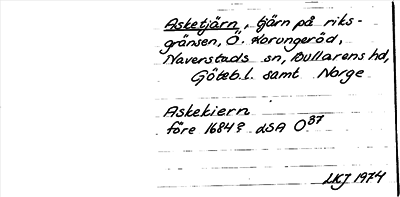 Asketjärn, tjärn på riks-
gränsen, Ö. Korungeröd,
Naverstads sn, Bullarens hd,
Göteb.l. samt Norge
Askekiern
före 1684? dSA O 37
LKJ 1974